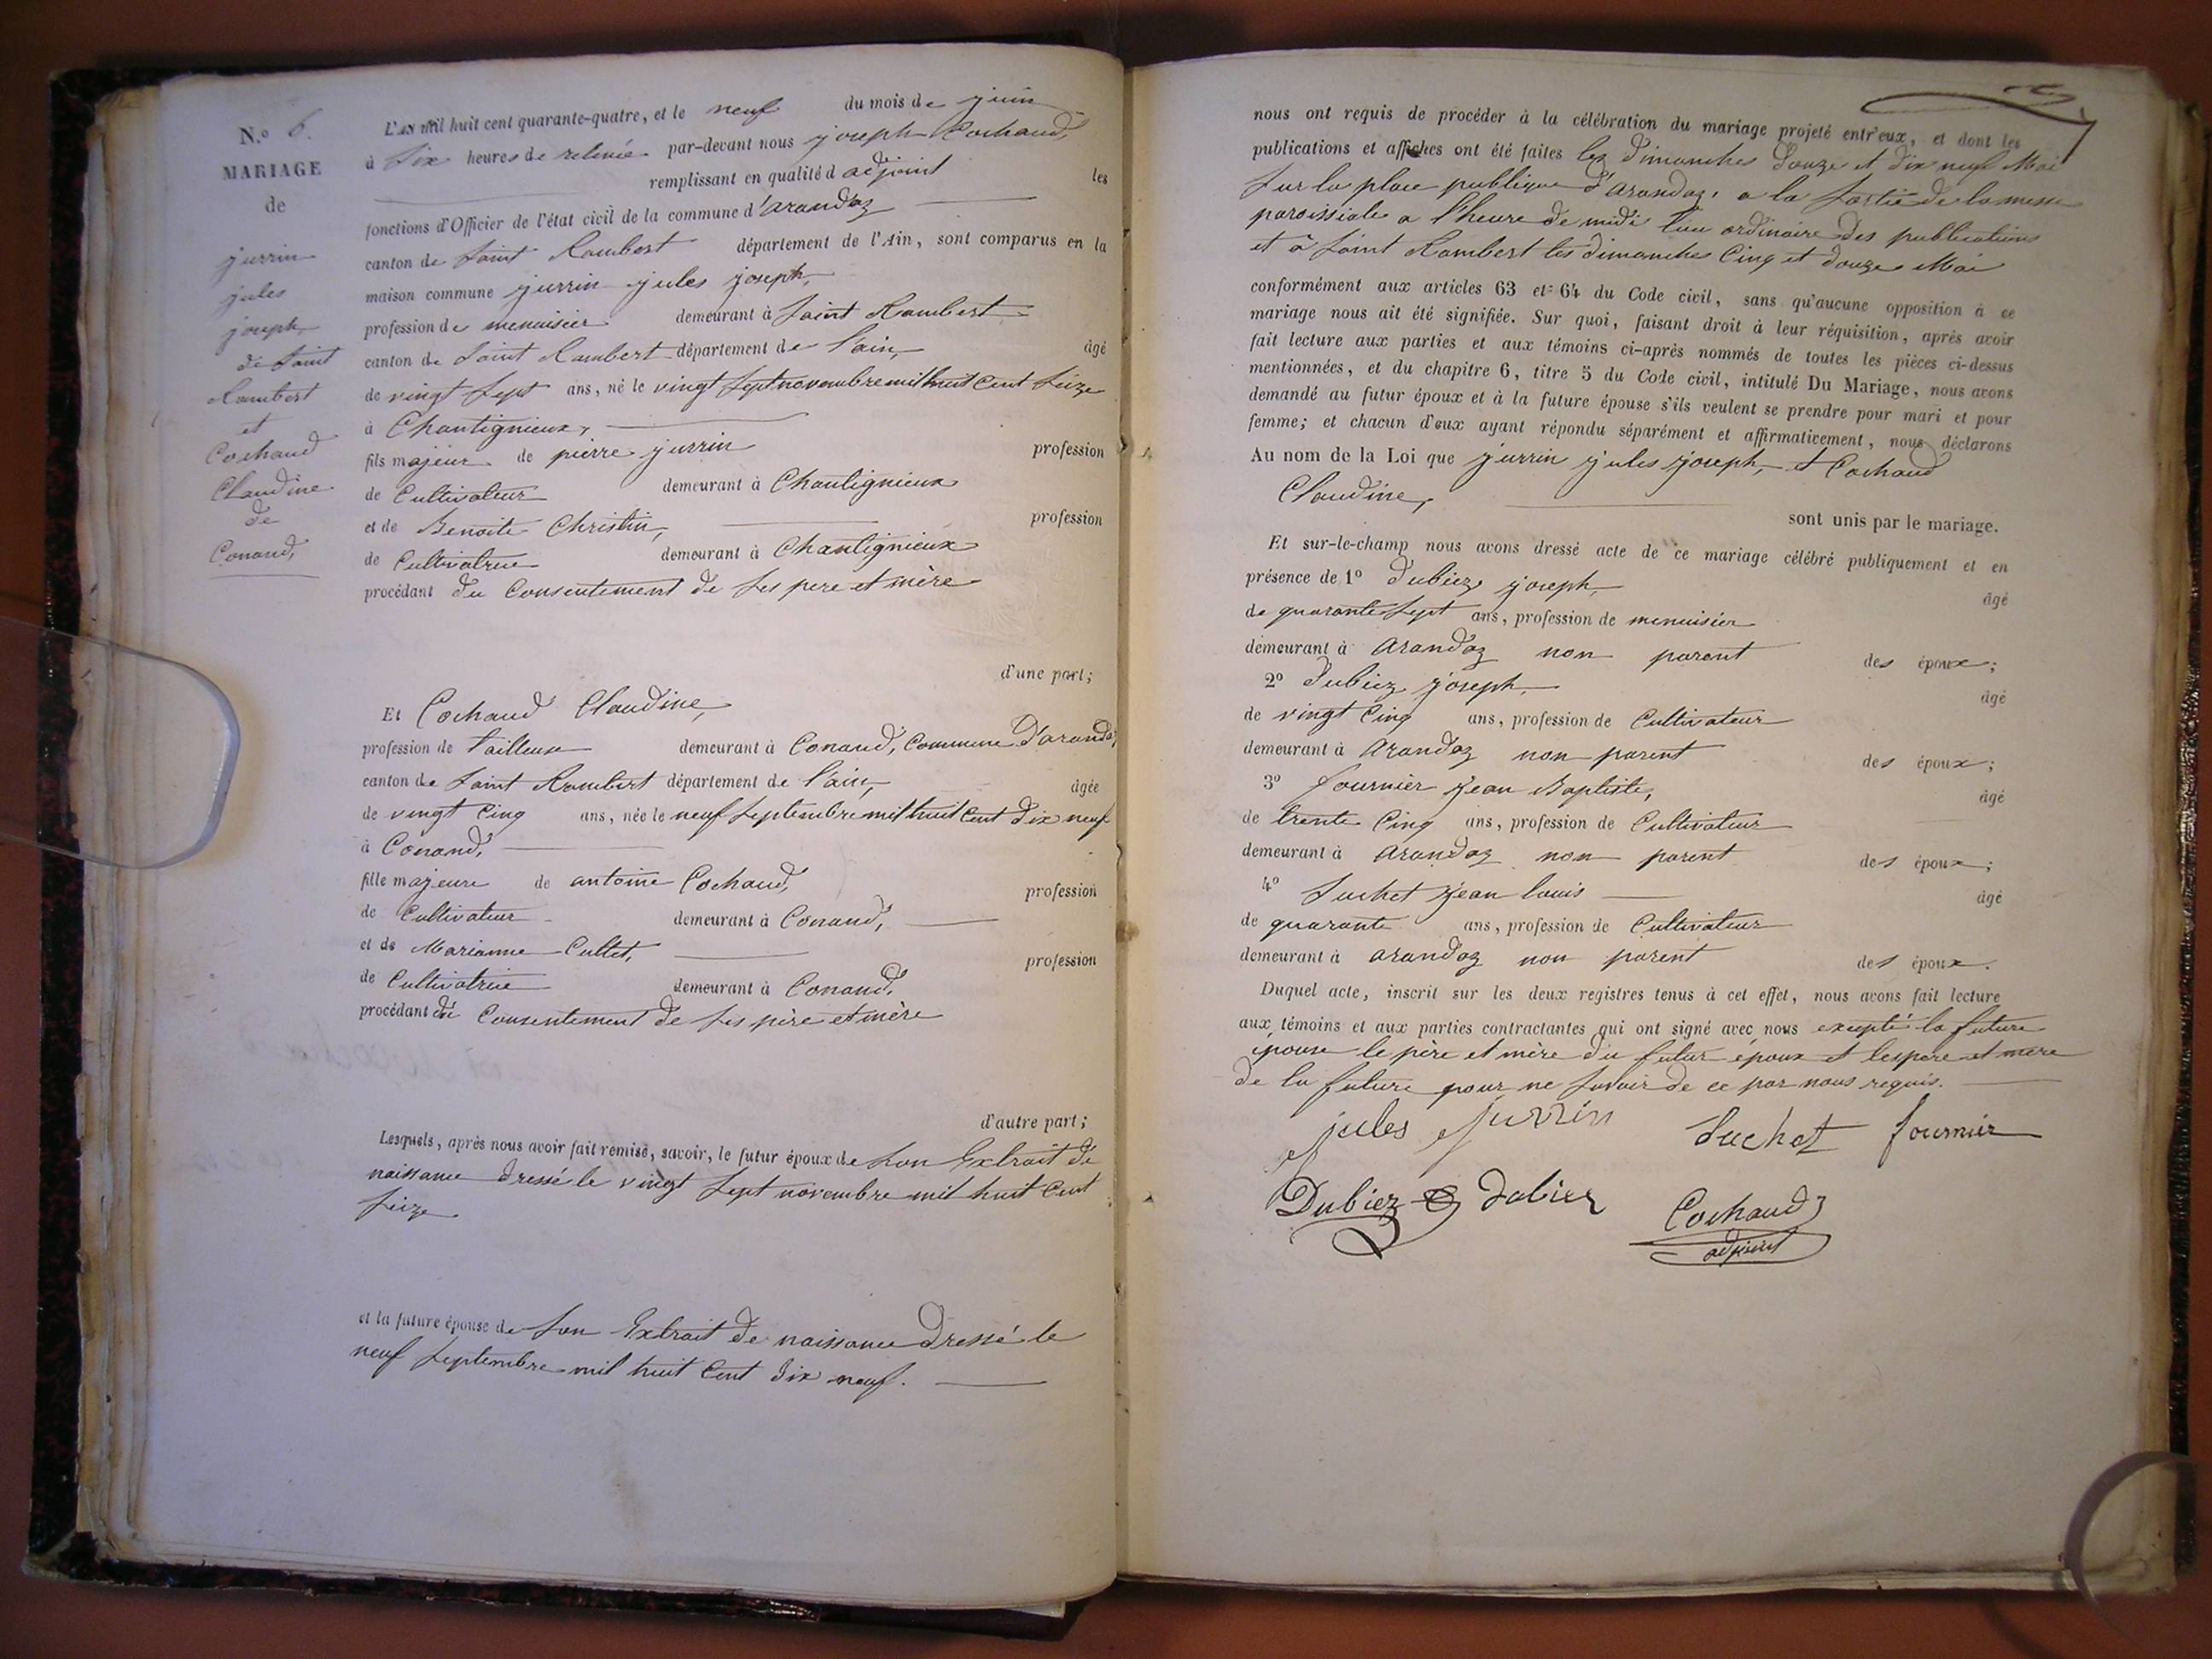 N.º 6.
MARIAGE
de
jurrin
jules
joseph
de Saint
Rambert
et
Cochaud
Claudine
de
Conand,
L'an mil huit cent quarante-quatre, et le neuf du mois de juin
à six heures de relevée par-devant nous joseph Cochaud,
remplissant en qualité d'adjoint les
fonctions d'Officier de l'état civil de la commune d'arandaz
canton de Saint Rambert département de l'Ain, sont comparus en la
maison commune jurrin jules joseph,
profession de menuisier demeurant à Saint Rambert
canton de Saint Rambert département de l'ain, âgé
de vingt sept ans, né le vingt sept novembre mil huit Cent seize
à Chantignieux,
fils majeur de pierre jurrin profession
de Cultivateur demeurant à Chantignieux
et de Benoite Christin, profession
de Cultivatrice demeurant à Chantignieux
procédant du Consentement de ses pere et mère
d'une part;
Et Cochaud Claudine,
profession de tailleuse demeurant à Conand, Commune D'arandaz
canton de Saint Rambert département de l'ain, âgée
de vingt Cinq ans, née le neuf Septembre mil huit Cent dix neuf
à Conand,
fille majeure de antoine Cochaud, profession
de Cultivateur demeurant à Conand,
et de Marianne Cultet, profession
de Cultivatrice demeurant à Conand,
procédant du Consentement de ses père et mère
d'autre part;
Lesquels, après nous avoir fait remise, savoir, le futur époux de son Extrait de
naissance dressé le vingt sept novembre mil huit Cent
seize
et la future épouse de son Extrait de naissance Dressé le
neuf Septembre mil huit Cent dix neuf.
nous ont requis de procéder à la célébration du mariage projeté entr'eux, et dont les
publications et affiches ont été faites les dimanches douze et dix neuf Mai
sur la place publique d'arandaz, a la sortie de la messe
paroissiale a l'heure de midi lieu ordinaire des publications
et à Saint Rambert les dimanches Cinq et douze Mai
conformément aux articles 63 et 64 du Code civil, sans qu'aucune opposition à ce
mariage nous ait été signifiée. Sur quoi, faisant droit à leur réquisition, après avoir
fait lecture aux parties et aux témoins ci-après nommés de toutes les pièces ci-dessus
mentionnées, et du chapitre 6, titre 5 du Code civil, intitulé Du Mariage, nous avons
demandé au futur époux et à la future épouse s'ils veulent se prendre pour mari et pour
femme; et chacun d'eux ayant répondu séparément et affirmativement, nous déclarons
Au nom de la Loi que jurrin jules joseph, et Cochaud
Claudine,
sont unis par le mariage.
Et sur-le-champ nous avons dressé acte de ce mariage célébré publiquement et en
présence de 1º Dubiez joseph, âgé
de quarante sept ans, profession de menuisier
demeurant à arandaz non parent des époux;
2º Dubiez joseph, âgé
de vingt Cinq ans, profession de Cultivateur
demeurant à arandaz non parent des époux;
3º fournier Jean Baptiste, âgé
de trente Cinq ans, profession de Cultivateur
demeurant à arandaz non parent des époux;
4º Suchet Jean louis âgé
de quarante ans, profession de Cultivateur
demeurant à arandaz non parent des époux.
Duquel acte, inscrit sur les deux registres tenus à cet effet, nous avons fait lecture
aux témoins et aux parties contractantes qui ont signé avec nous excepté la future
épouse le père et mère du futur époux et les pere et mere
de la future pour ne savoir de ce par nous requis.
jules jurrin Suchet fournier
Dubiez dubiez Cochaud
adjoint